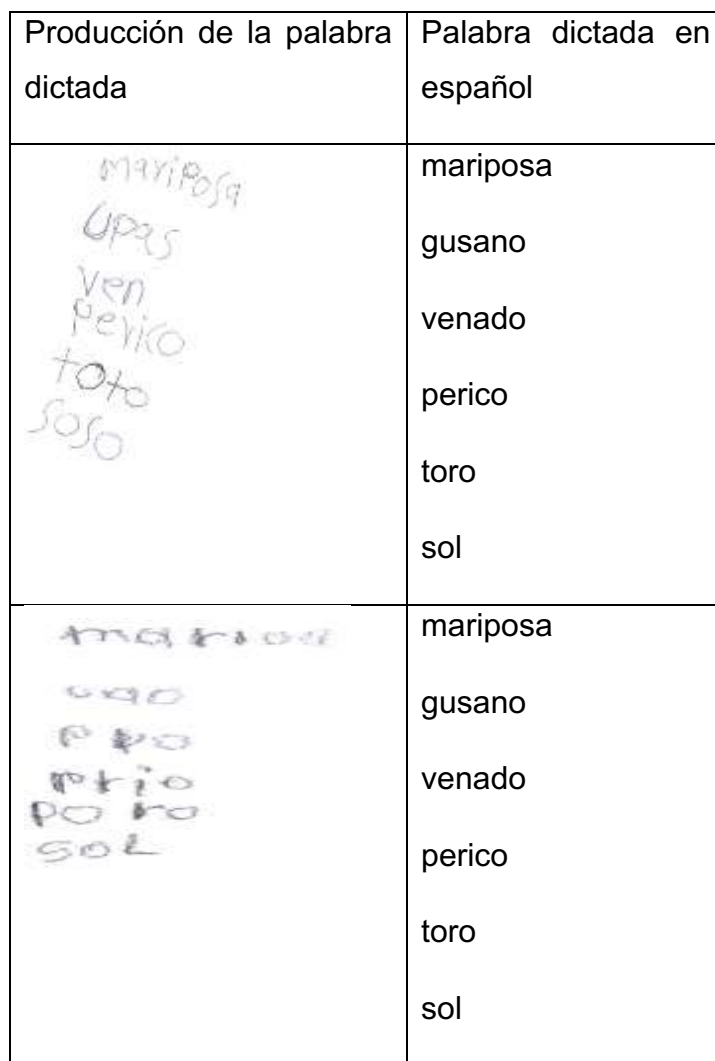 Producción de la palabra
dictada
Palabra dictada en
español
mariposa
upas
ven
perico
toto
soso
mariposa
gusano
venado
perico
toro
sol
marioa
uao
ppo
prio
poro
sol
mariposa
gusano
venado
perico
toro
sol